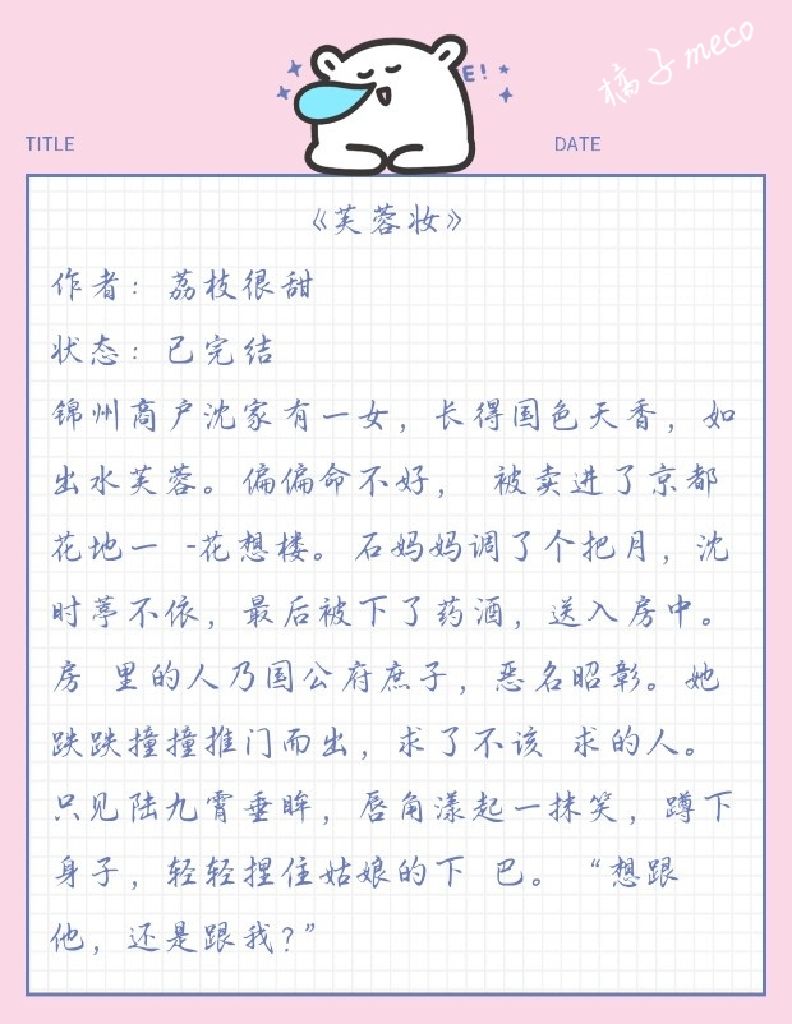 E!
橘子meco
TITLE
DATE
《芙蓉妆》
作者：荔枝很甜
状态：已完结
锦州商户沈家有一女，长得国色天香，如
出水芙蓉。偏偏命不好， 被卖进了京都
花地一 -花想楼。石妈妈调了个把月，沈
时葶不依，最后被下了药酒，送入房中。
房 里的人乃国公府庶子，恶名昭彰。她
跌跌撞撞推门而出，求了不该 求的人。
只见陆九霄垂眸，唇角漾起一抹笑，蹲下
身子，轻轻捏住姑娘的下 巴。“想跟
他，还是跟我？”